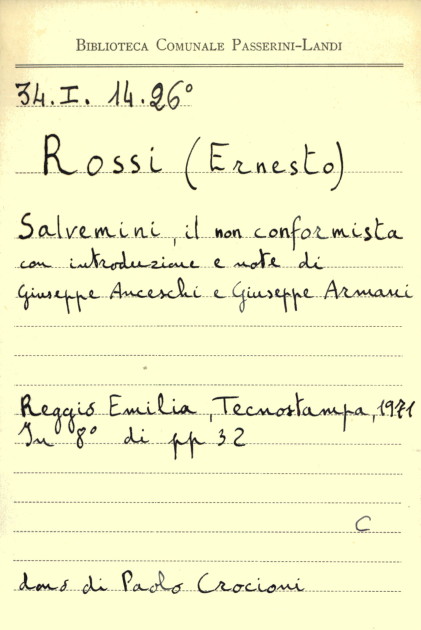 BIBLIOTECA COMUNALE PASSERINI-LANDI
34.I. 14.26°
Rossi (Ernesto)
Salvemini, il non conformista
con introduzione e note di
Giuseppe Anceschi e Giuseppe Armani
Reggio Emilia, Tecnostampa, 1971
In 8° di pp 32
C
dono di Paolo Crocioni